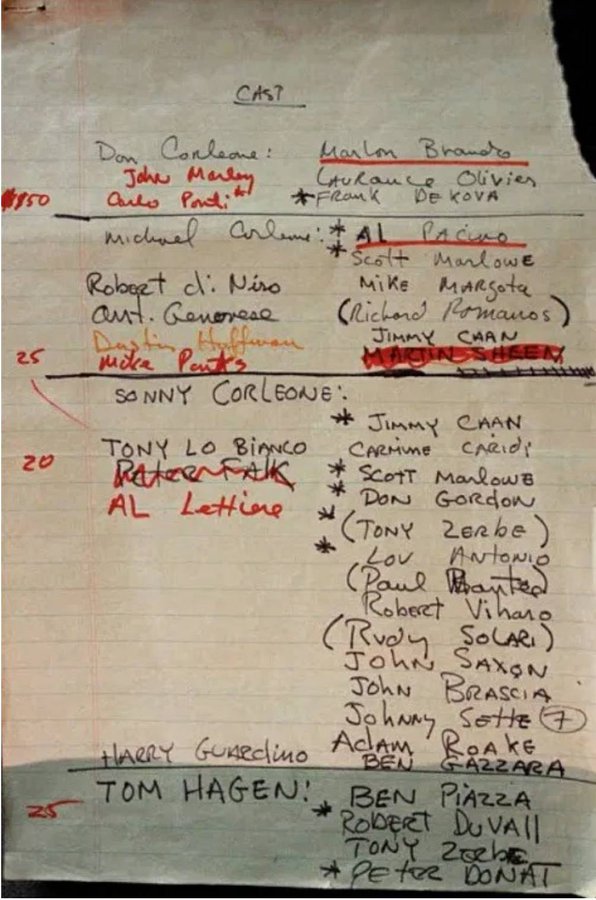 CAST
Don Corleone: Marlon Brando
John Marley Laurance Olivier
$850 Carlo Ponti* *FRANK DE KOVA
Michael Corleone: * AL PACINO
* Scott Marlowe
Robert di Niro Mike Margota
Ant. Genovese (Richard Romanos)
Dustin Hoffman Jimmy Caan
25 Mike Parks MARTIN SHEEN
SONNY CORLEONE:
* Jimmy Caan
TONY LO BIANCO CARMINE CARIDI
20 Peter Falk * Scott Marlowe
AL Lettiere * DON GORDON
* (TONY ZERBE)
* LOU ANTONIO
(Paul)
Robert Viharo
(RUDY SOLARI)
JOHN SAXON
JOHN BRASCIA
Johnny Sette 7
Adam Roake
HARRY GUARDINO BEN GAZZARA
TOM HAGEN: BEN PIAZZA
25 * ROBERT DUVALL
TONY Zerbe
* PETER DONAT